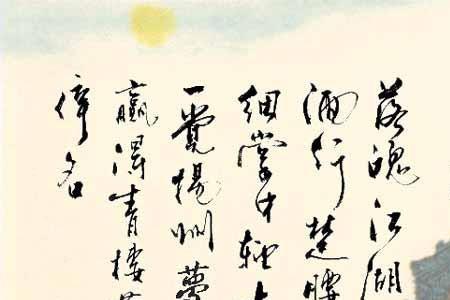 落魄江湖
酒行楚腰
細掌中輕
一覺揚州夢
贏得青樓
倖名